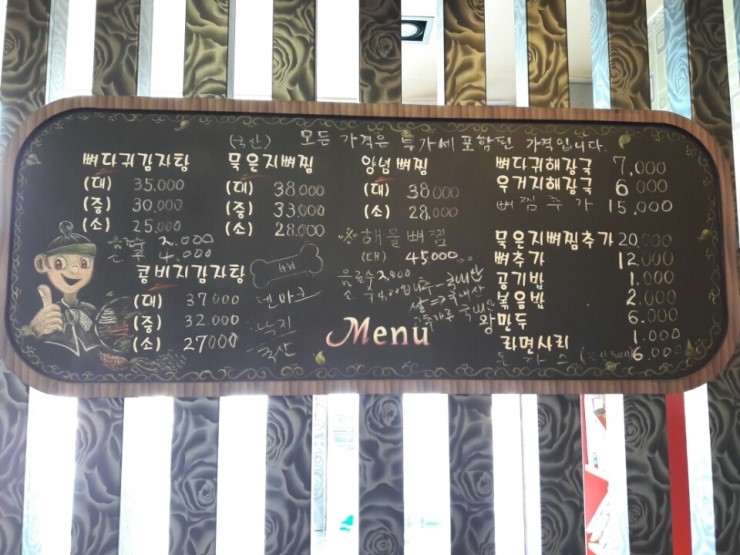 모든 가격은 특가세 포함된 가격입니다.
뼈다귀감자탕
(대) 35,000
(중) 30,000
(소) 25,000
2,000
소주 4,000
콩비지감자탕
(대) 37000
(중) 32.000
(소) 27000
(국산)
묵은지뼈찜
(대) 38000
(중) 33,000
(소) 28,000
뼈
덴마크
낙지
국산
양념뼈찜
(대) 38000
(소) 28,000
※해물뼈찜
(대) 45000
음료수 2,000
쌀⇒국내산
Menu
뼈다귀해장국 7,000
우거지해장국 6000
뼈찜추가 15,000
묵은지뼈찜추가 20,000
뼈추가 12,000
공기밥 1.000
볶음밥 2.000
왕만두 6.000
라면사리 1.000
6,000